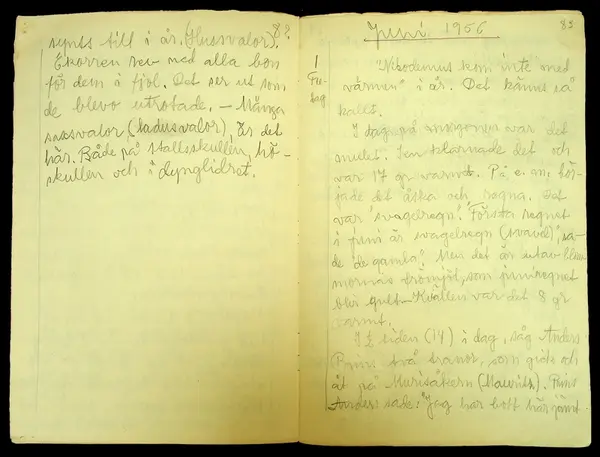 82
synts till i år. (Hussvalor).
Ekorren rev ned alla bon
för dem i fjol. Det ser ut som
de blevo utrotade. — Många
svalor (ladusvalor), är det
här. Både på stallsskullen, hö-
skullen och i dynglidret.
83
Juni 1956
1
Fre-
dag
"Nikodemus kom inte med
värmen" i år. Det kännes så
kallt.
I dag på morgonen var det
mulet. Sen klarnade det och
var 17 gr varmt. På e.m. bör-
jade det åska och regna. Det
var "svagelregn". "Första regnet
i juni är svagelregn (svavel)", sa-
de "de gamla". Men det är utav blom-
mornas frömjöl, som juniregnet
blir gult — Kvällen var det 8 gr
varmt.
I 2 tiden (14) i dag, såg Anders
Prins två tranor, som gick och
åt på Murisåkern (Mauritz). Prins
Anders sade: "Jag har bott här jämt